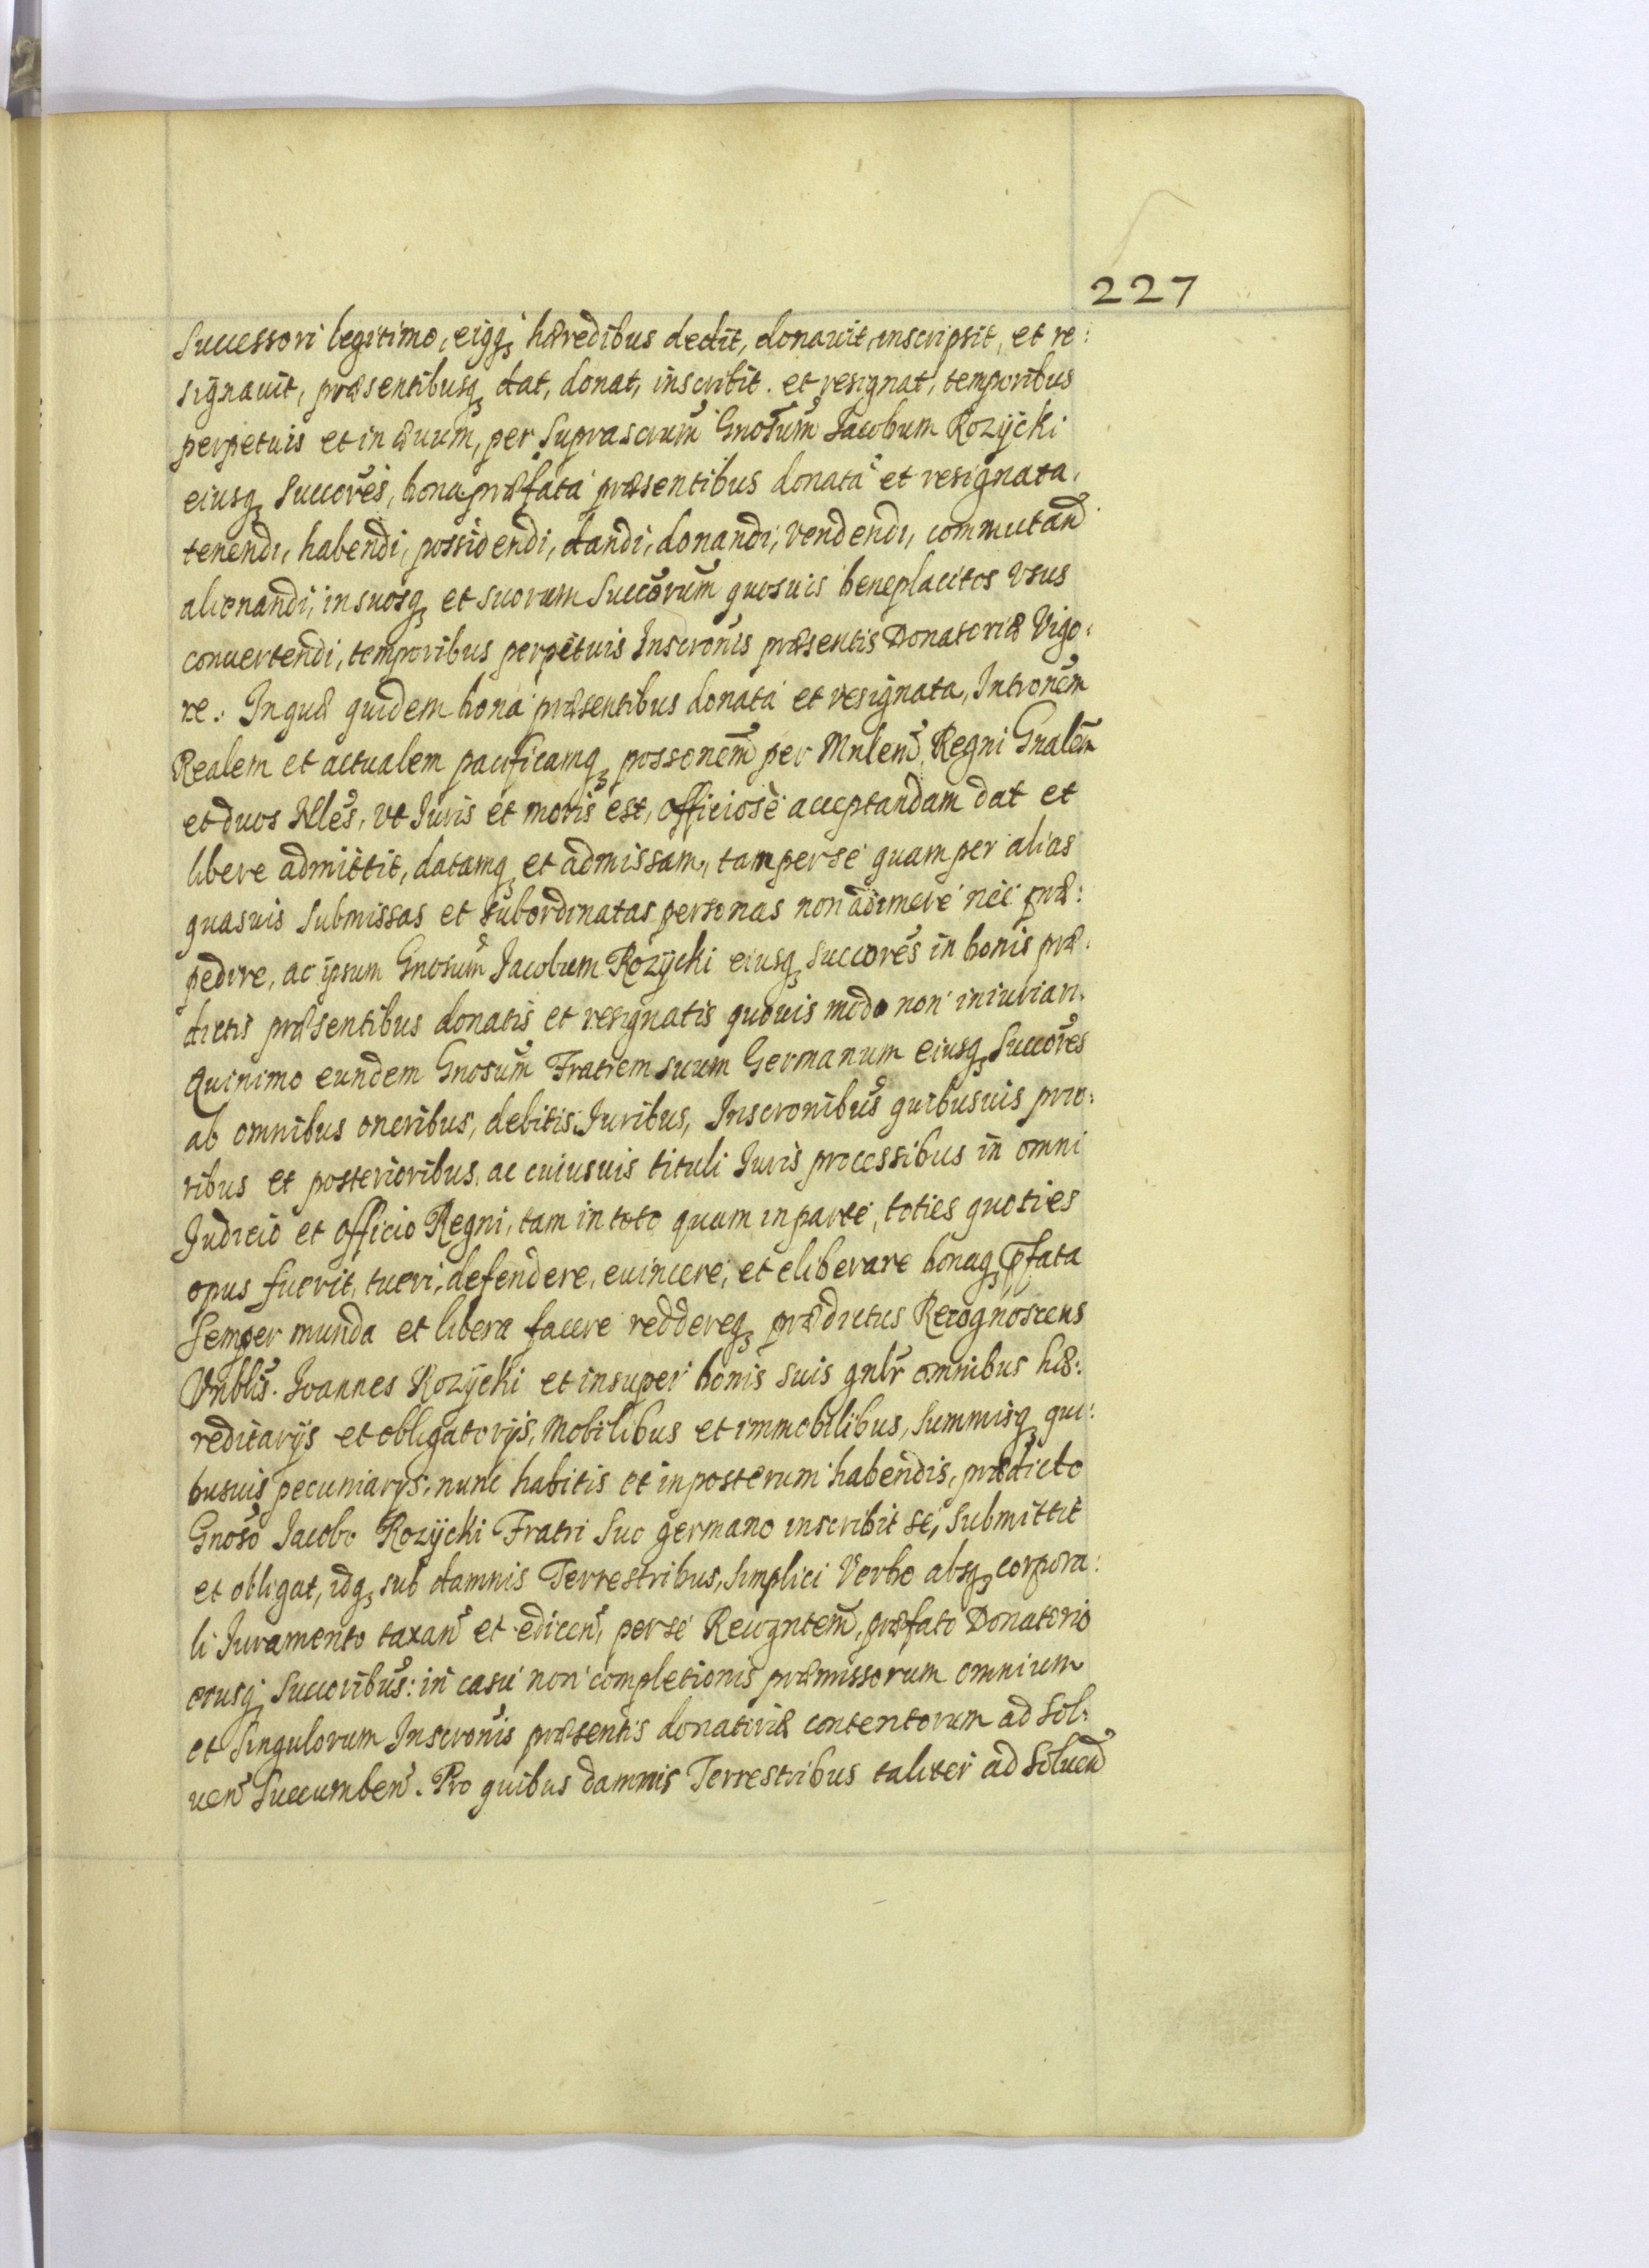 227
Successori legitimo, eiqq₃ hæredibus dedit, donauit, inscripsit, et re:
signauit, præsentibusq₃ dat, donat, inscribit. et resignat, temporibus
perpetuis et in æuum, per Suprascrum̃ Gnosum̃ Jacobum Rozÿcki
eiusq₃ Succores̃, bona præfata præsentibus donata et resignata,
tenendi, habendi, possidendi, dandi, donandi, vendendi, commutand̃
alienandi, in suosq₃ et suorum Succorum̃ quosuis beneplacitos Vsus
conuertendi, temporibus perpetuis Inscronis̃ præsentis Donatoriæ Vigo:
re. In quæ quidem bona præsentibus donata et resignata, Intronem̃
Realem et actualem pacificamq₃ possonem̃ per Mnlem̃ Regni Gnalem̃
et duos Nles̃, vt Juris et moris est, officiosè acceptandam dat et
libere admittit, datamq₃ et admissam, tam per se quam per alias
quasuis Submissas et subordinatas personas non adimere nec præ:
pedire, ac ipsum Gnosum̃ Jacobum Rozÿcki eiusq₃ Succores̃ in bonis præ:
dictis præsentibus donatis et resignatis quouis modo non iniuriari.
Quinimo eundem Gnosum̃ Fratrem suum Germanum eiusq₃ Succores̃
ab omnibus oneribus, debitis, Juribus, Inscronibus̃ quibusuis prio:
ribus et posterioribus, ac cuiusuis tituli Juris processibus in omni
Judicio et officio Regni, tam in toto quam in parte, toties quoties
opus fuerit, tueri, defendere, euincere, et eliberare bonaq₃ p̃fata
Semper munda et libera facere reddereq₃ prædictus Recognoscens
Vnblis̃. Joannes Rozÿcki et insuper bonis suis gnlr̃ omnibus hæ:
reditarÿs et obligatorÿs, Mobilibus et immobilibus, Summisq₃ qui:
busuis pecuniarÿs, nunc habitis et in posterum habendis, prædicto
Gnoso̴ Jacobo Rozÿcki Fratri Suo germano inscribit se, Submittit
et obligat, idq₃ sub damnis Terrestribus, Simplici Verbo absq₃ corpora:
li Juramento taxan̴ et edicen̴, per se Recogntem̃, præfato Donatorio
eiusq₃ Succoribus̃: in casu non completionis præmissorum omnium
et Singulorum Inscronis̃ præsentis donatoriæ contentorum ad Sol:
uen̴ Succumben̴. Pro quibus damnis Terrestribus taliter ad Soluend̃